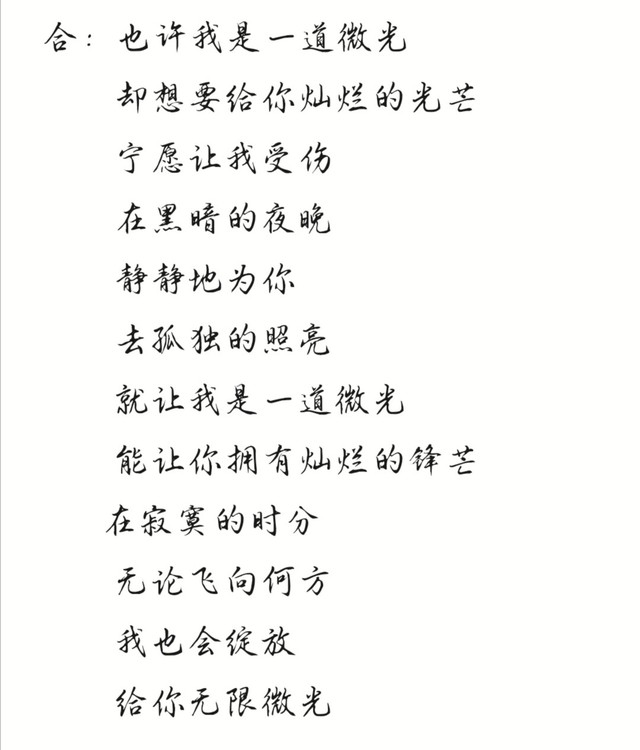 合：也许我是一道微光
却想要给你灿烂的光芒
宁愿让我受伤
在黑暗的夜晚
静静地为你
去孤独的照亮
就让我是一道微光
能让你拥有灿烂的锋芒
在寂寞的时分
无论飞向何方
我也会绽放
给你无限微光